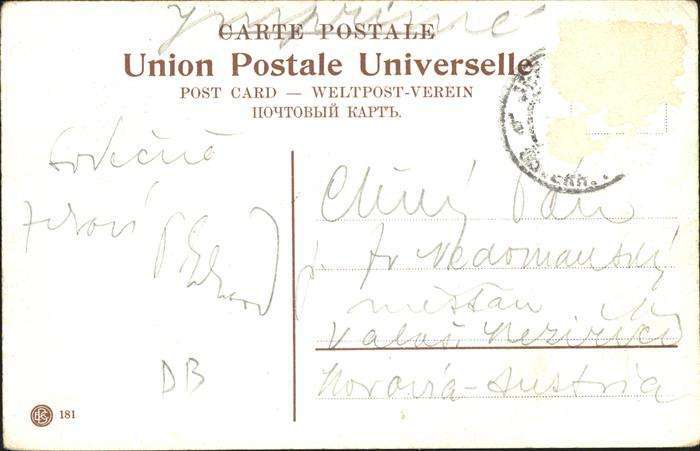 Imprimé
CARTE POSTALE
Union Postale Universelle
POST CARD — WELTPOST-VEREIN
ПОЧТОВЫЙ КАРТЪ.
Srdečně
zdraví
Ctěný Pán
p. Fr Nedomanský
měšťan
Valaš. Meziříčí
Moravia-Austria
DB
181